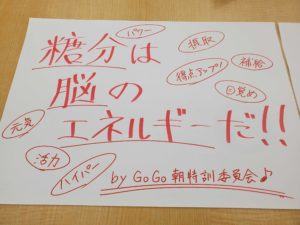 パワー
糖分は
摂取
補給
脳の
得点アップ!
目覚め
元気
エネルギーだ!!
活力
ハイパー
by GoGo朝特訓委員会♪